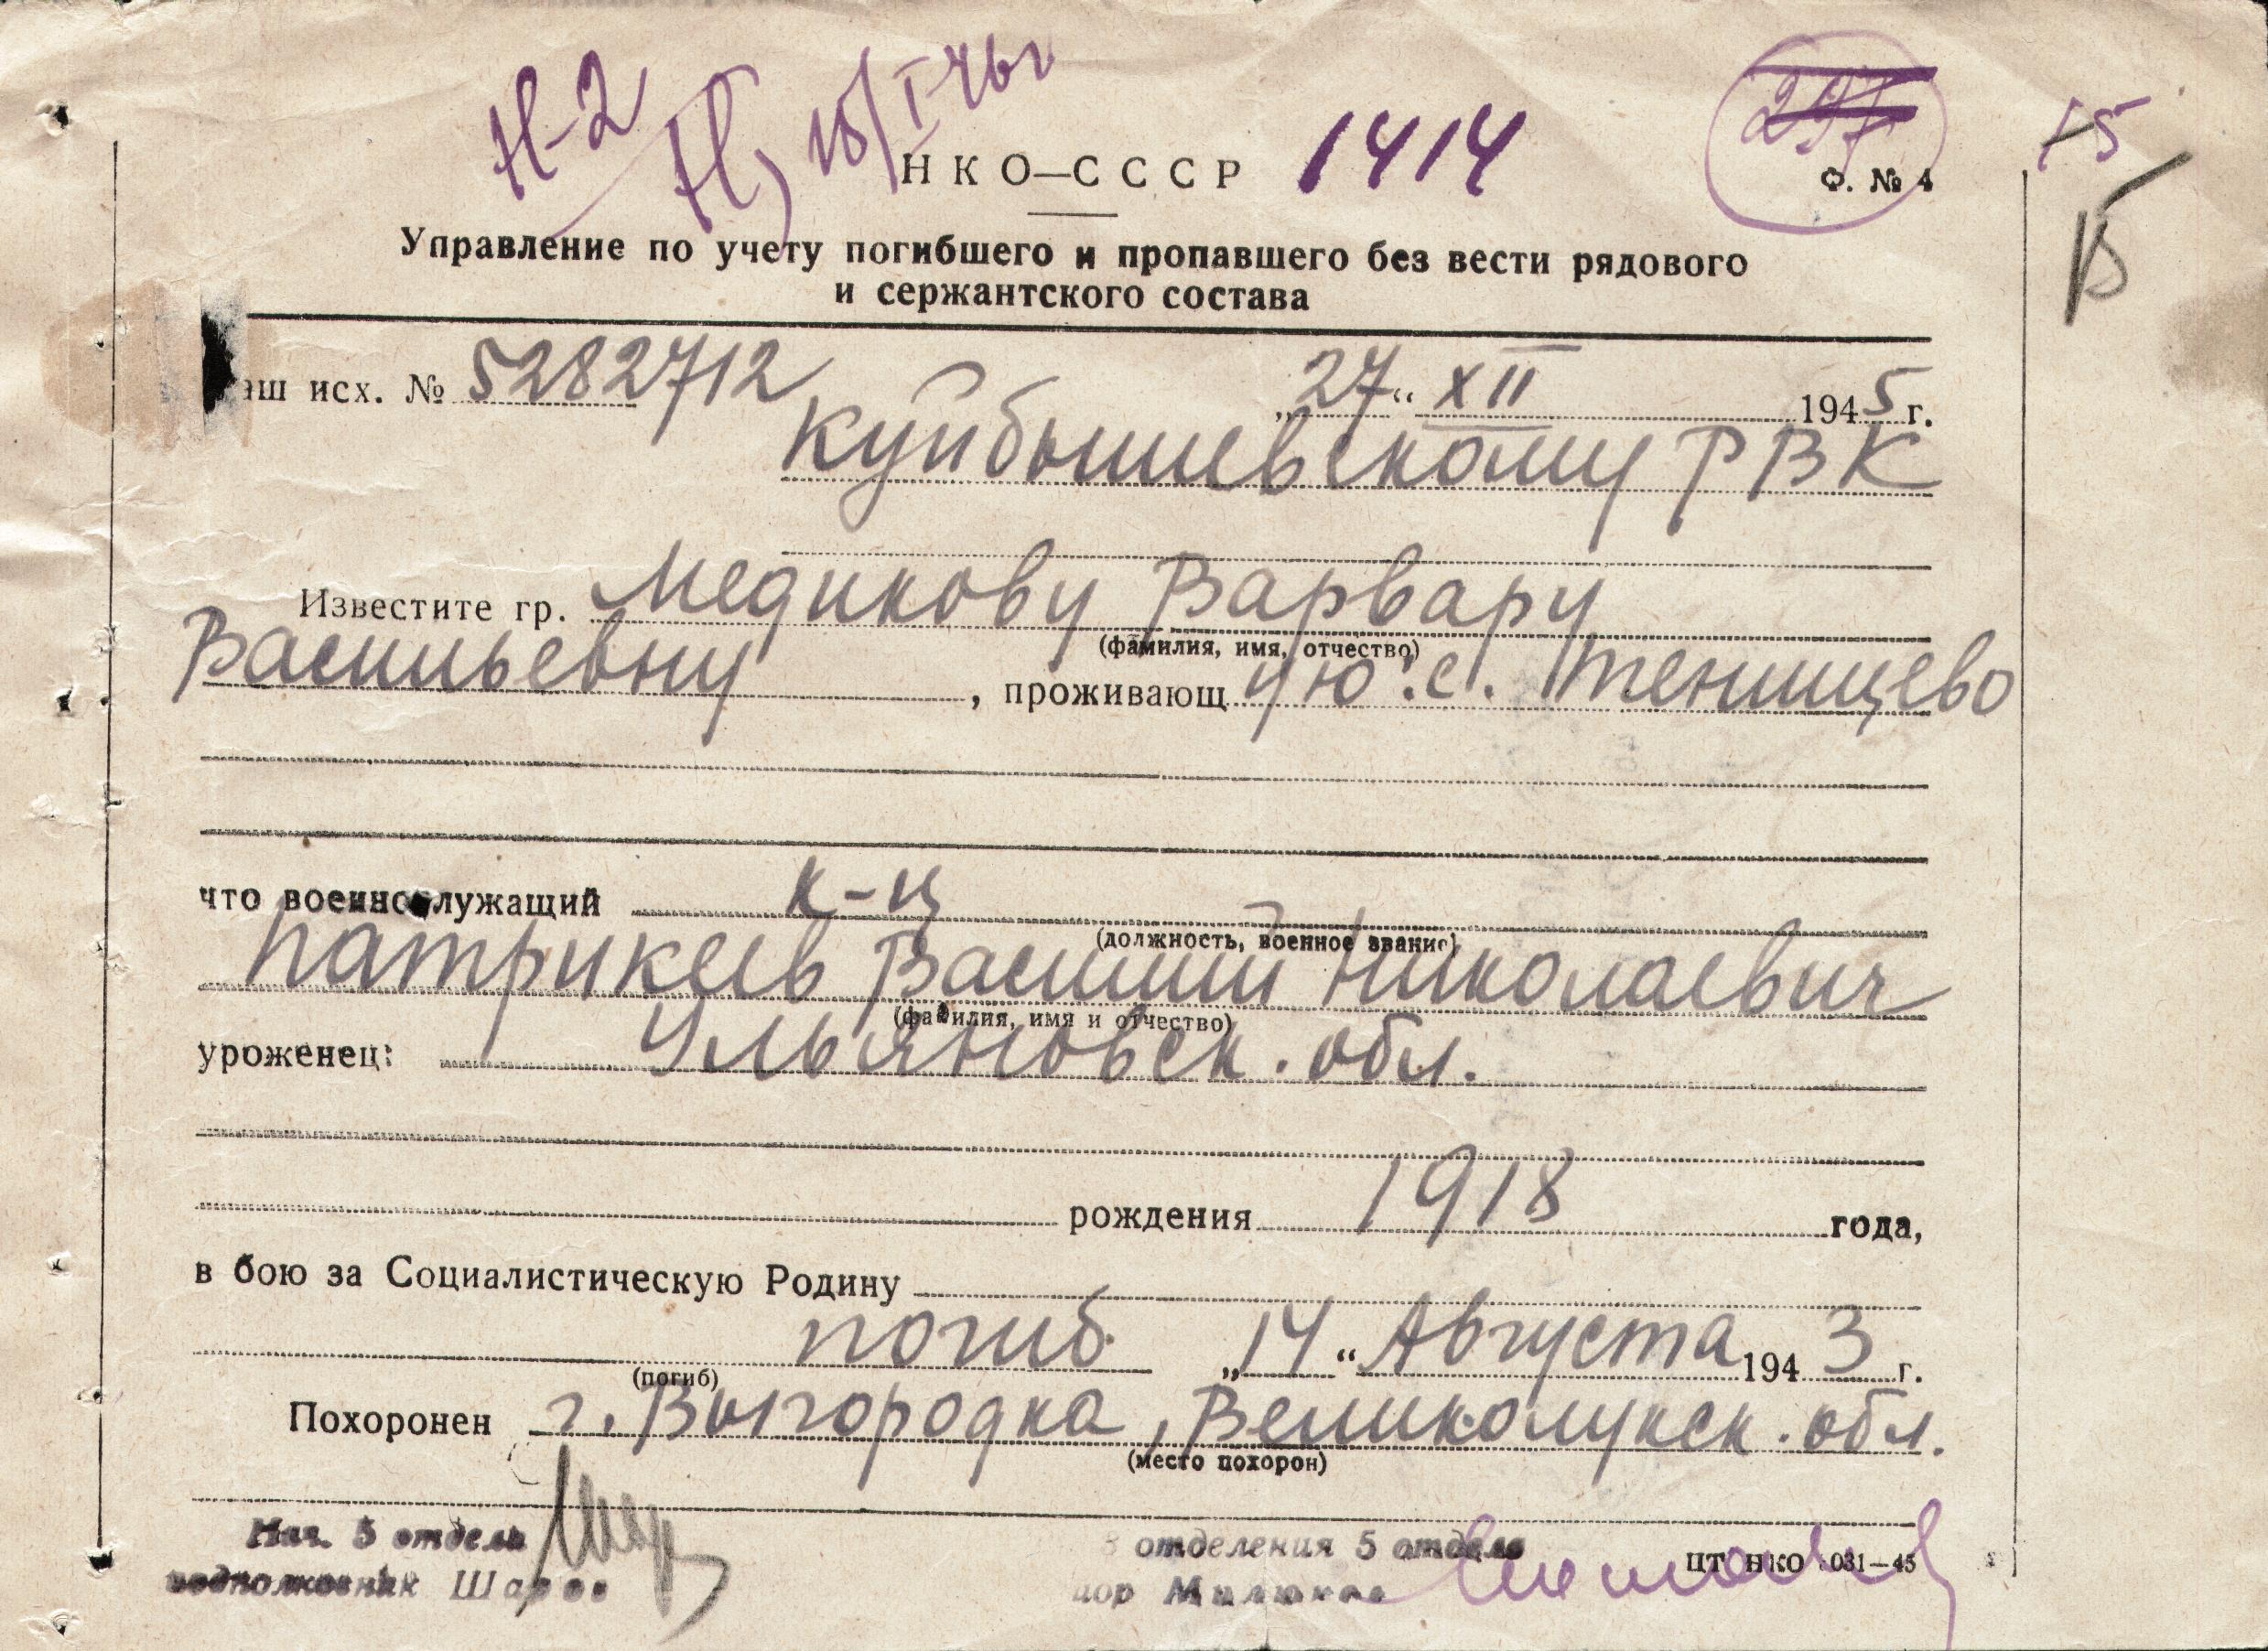 Н-2
1414
297
15
НКО—СССР
Ф. № 4
Управление по учету погибшего и пропавшего без вести рядового
и сержантского состава
аш исх. № 5282712
„27“ XII 1945 г.
Куйбышевскому РВК
Известите гр. Медикову Варвару
(фамилия, имя, отчество)
Васильевну, проживающ ую: с. Тенишево
что военнослужащий к-ц
(должность, военное звание)
Патрикеев Василий Николаевич
(фамилия, имя и отчество)
уроженец: Ульяновск. обл.
рождения 1918 года,
в бою за Социалистическую Родину
погиб „14“ Августа 1943 г.
(погиб)
Похоронен г. Выгородка, Великолукск. обл.
(место похорон)
Нач. 5 отдела
3 отделения 5 отдела
ЦТ НКО 031—45
подполковник